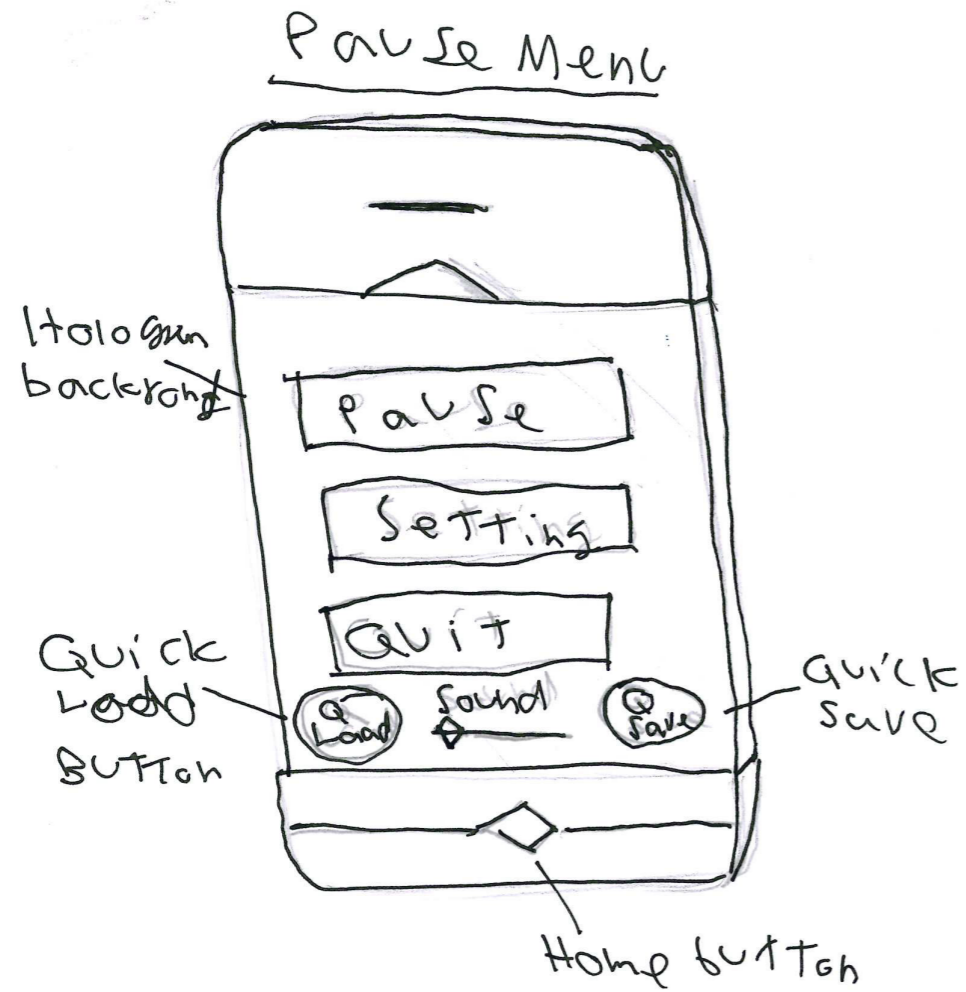 Pause Menu
Hologrm
backrond
Pause
Setting
Quit
Quick
Load
Button
Q
Load
Sound
Q
Save
Quick
Save
Home button